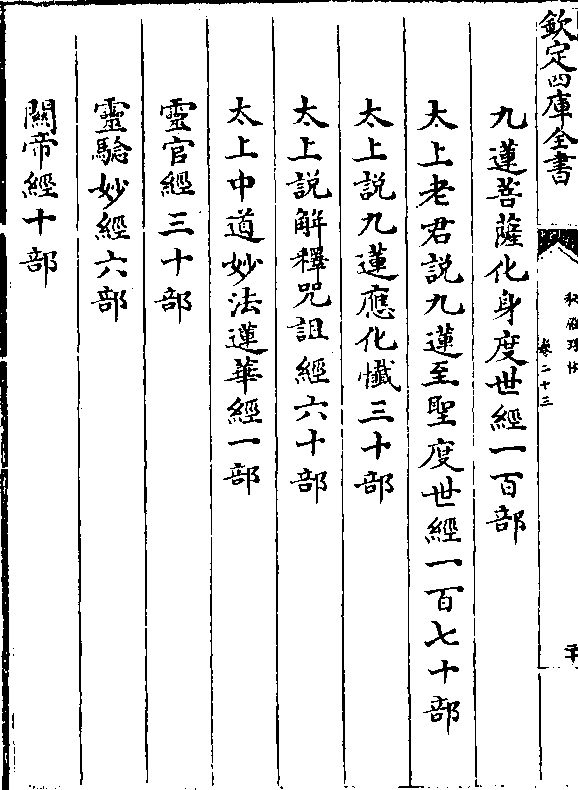 欽定四庫全書
卷二十三
九蓮菩薩化身度世經一百部
太上老君説九蓮至聖度世經一百七十部
太上説九蓮應化懺三十部
太上説解釋咒詛經六十部
太上中道妙法蓮華經一部
靈官經三十部
靈驗妙經六部
關帝經十部